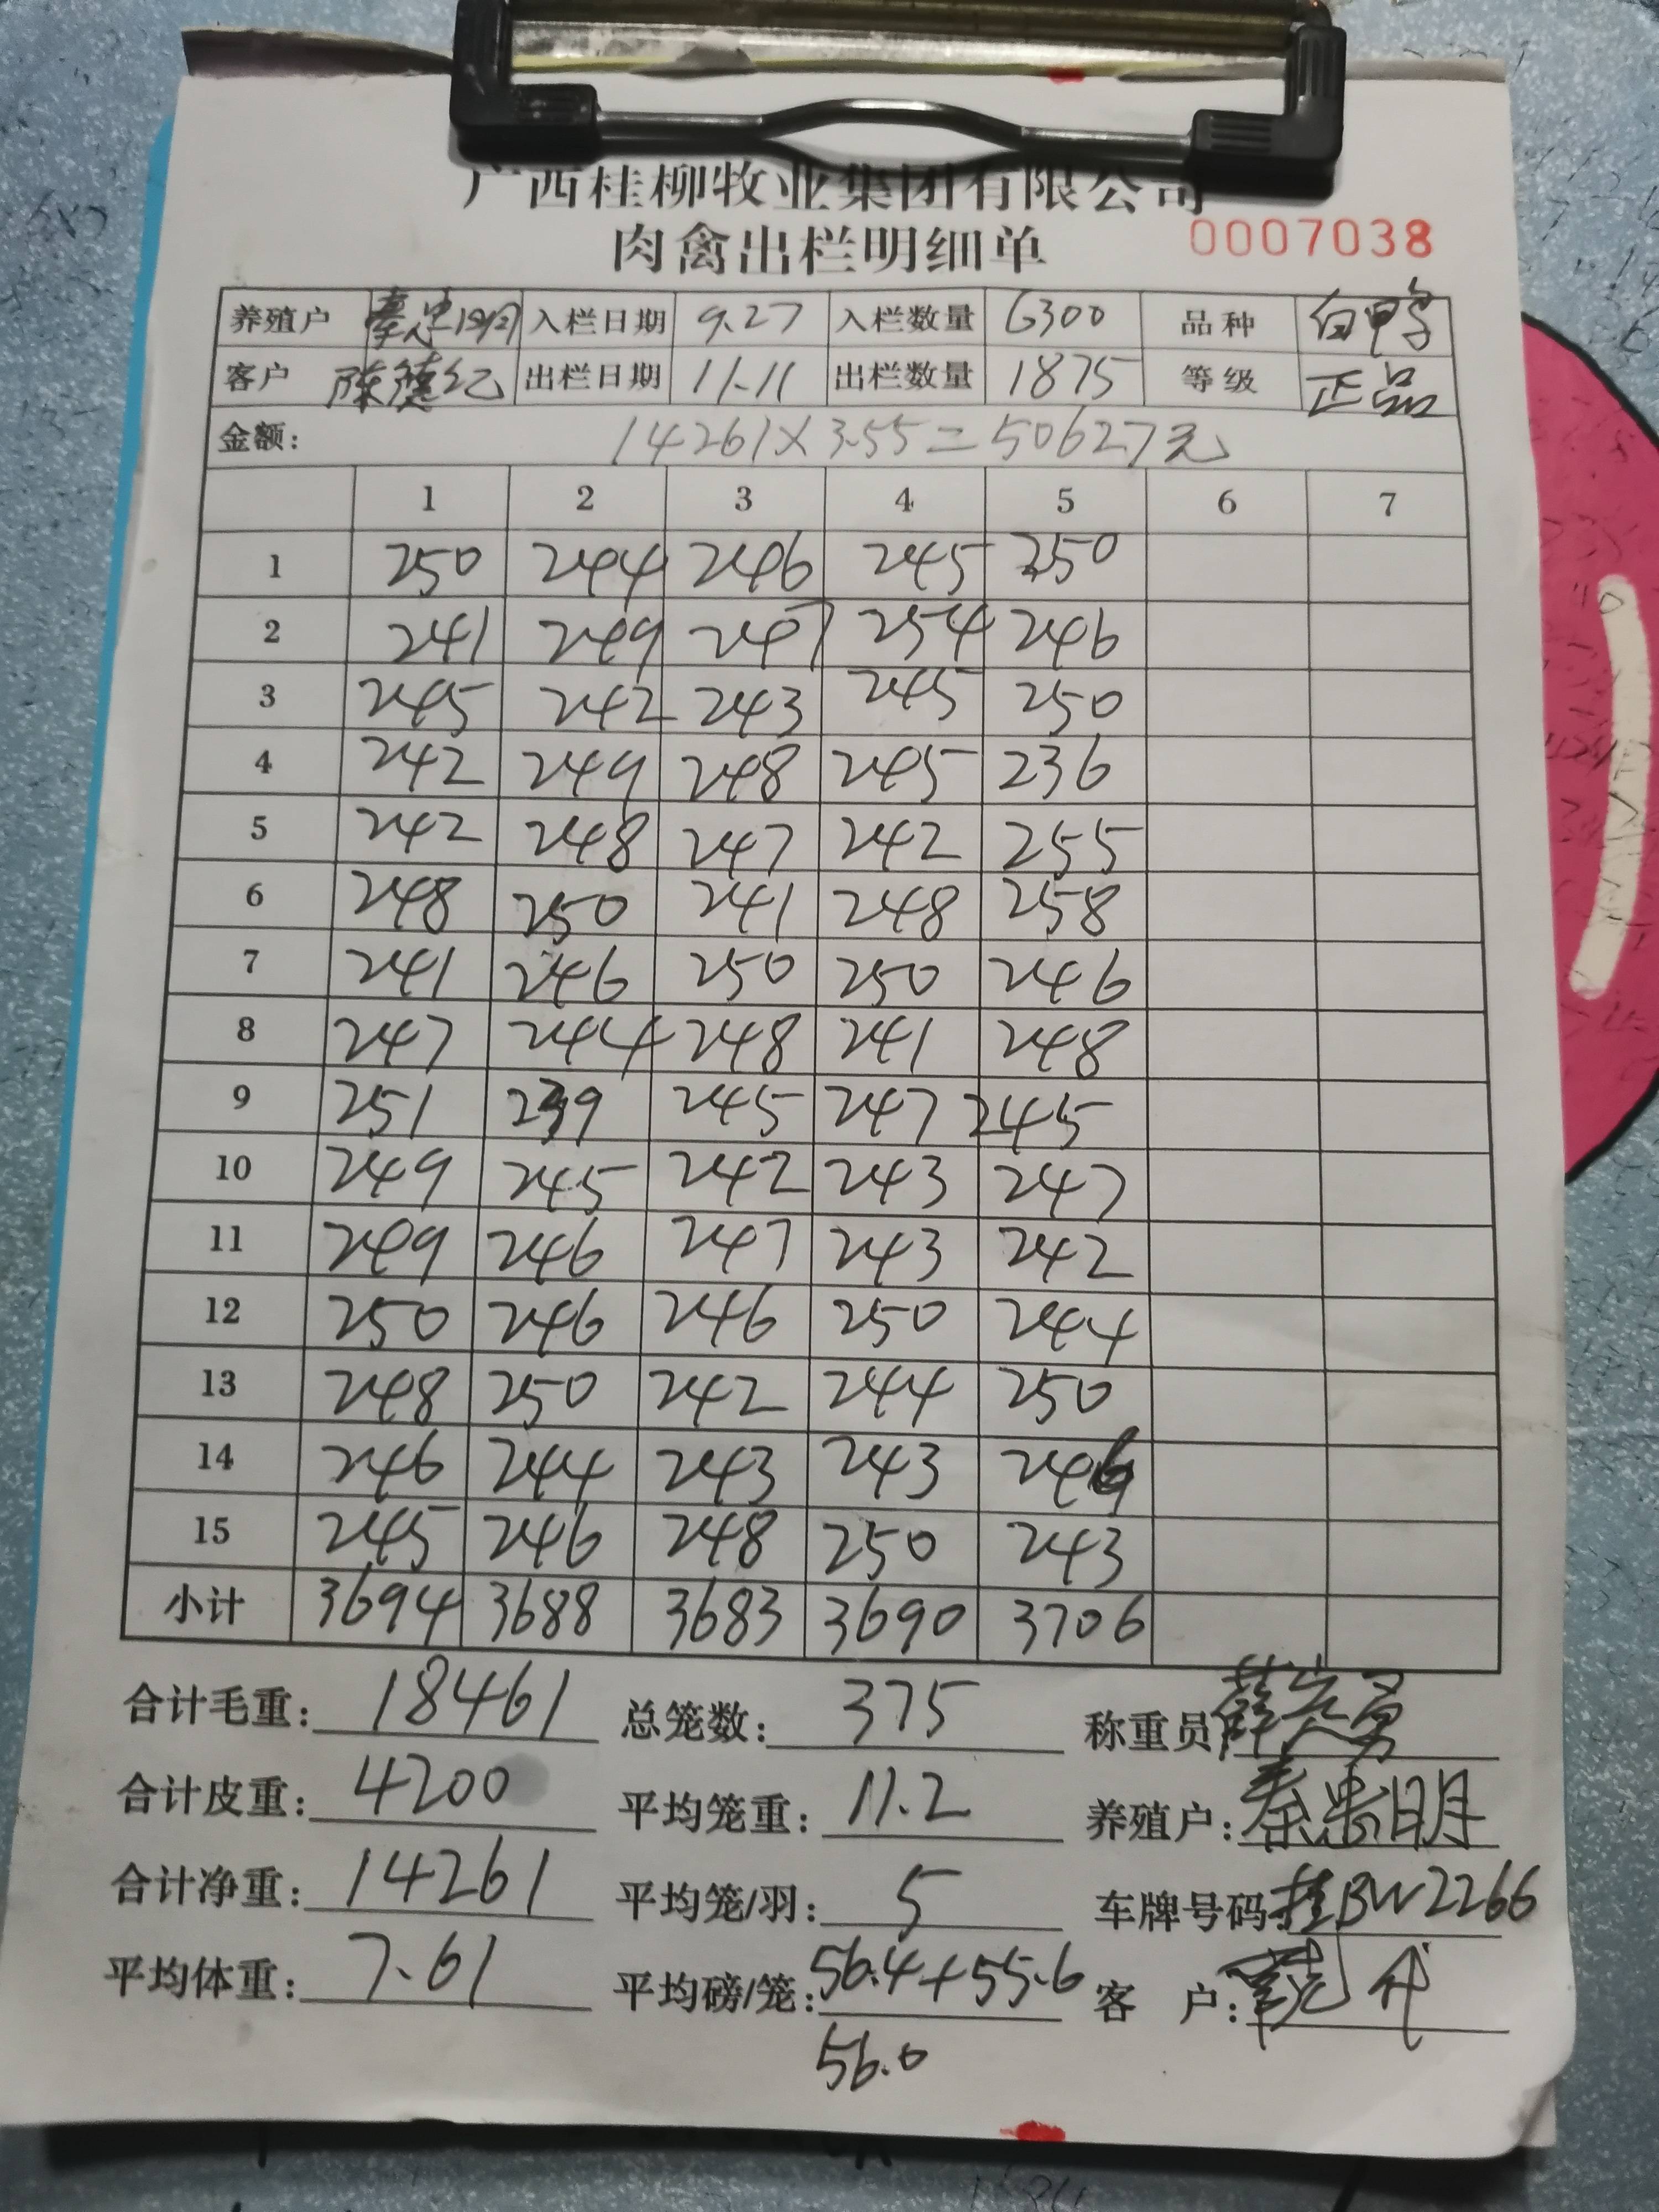 广西桂柳牧业集团有限公司
肉禽出栏明细单 0007038
养殖户 秦忠明 入栏日期 9.27 入栏数量 6300 品种 白鸭
客户 陈德纪 出栏日期 11.11 出栏数量 1875 等级 正品
金额: 14261×3.55=50627元
1 2 3 4 5 6 7
1 250 244 246 245 250
2 241 249 247 254 246
3 245 242 243 245 250
4 242 249 248 245 236
5 242 248 247 242 255
6 248 250 241 248 258
7 241 246 250 250 246
8 247 244 248 241 248
9 251 239 245 247 245
10 249 245 242 243 247
11 249 246 247 243 242
12 250 246 246 250 244
13 248 250 242 244 250
14 246 244 243 243 246
15 245 246 248 250 243
小计 3694 3688 3683 3690 3706
合计毛重: 18461 总笼数: 375 称重员
合计皮重: 4200 平均笼重: 11.2 养殖户:
合计净重: 14261 平均笼/羽: 5 车牌号码: 桂BW2266
平均体重: 7.61 平均磅/笼: 56.4+55.6 客 户:
56.0